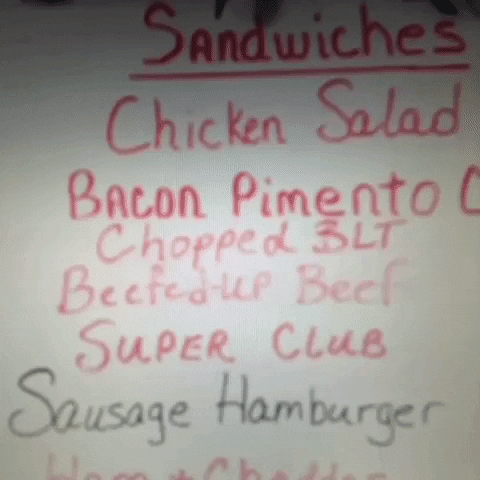 Sandwiches
Chicken Salad
Bacon Pimento C
Chopped BLT
Beefed-up Beef
Super Club
Sausage Hamburger
Ham + Cheddar